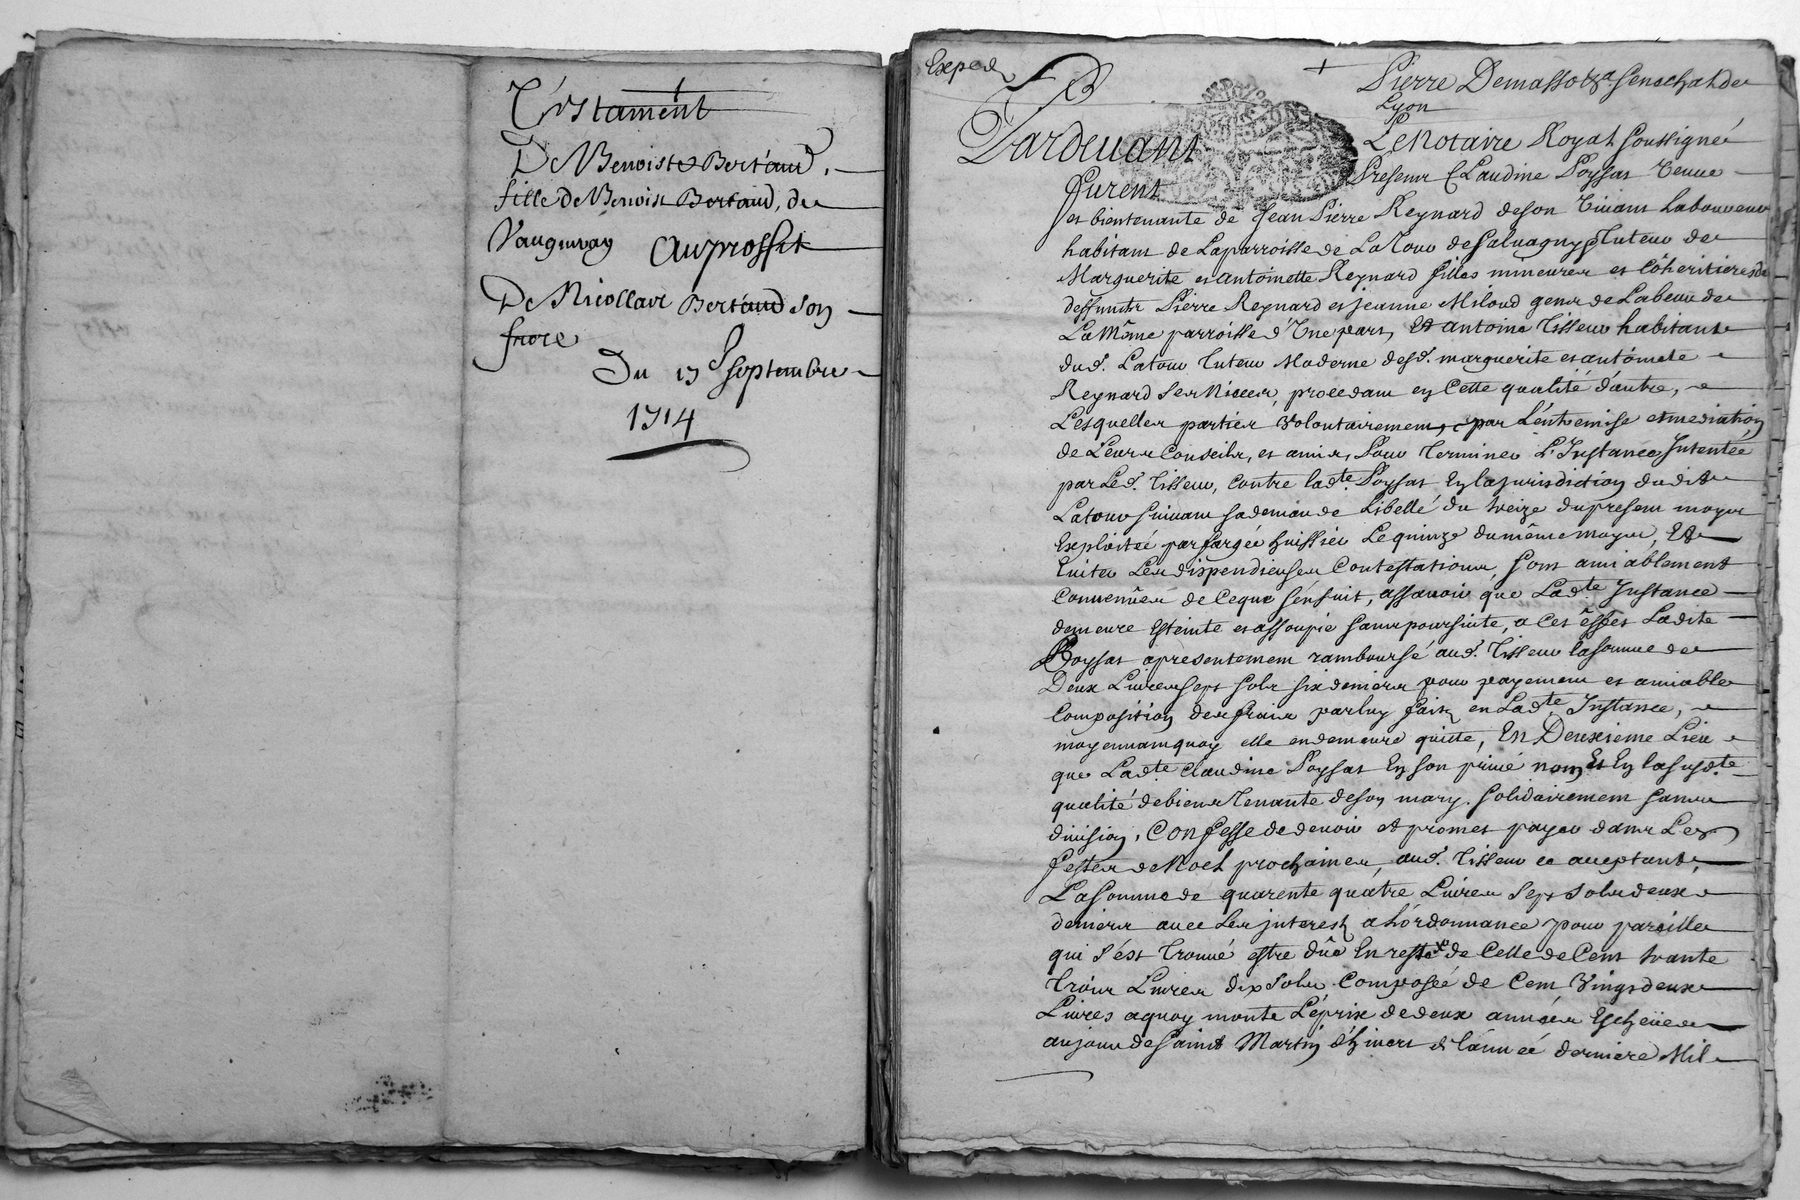 Testament
De Benoiste Bertaud,
fille de Benoist Bertaud, de
Vaugneray Au proffit
De Nicollas Bertaud son
frere
Du 13 Septembre
1714
Exped
Pierre Demasso sr Senechal de
Lyon
Pardevant Le Notaire Royal soussigné
furent Presens Claudine Poysat veuve
et bientenante de Jean Pierre Reynard de son vivant laboureur
habitant de La parroisse de La Tour de Salvagny tuteur de
Marguerite et antoinette Reynard filles mineures et cöheritieres de
deffunts Pierre Reynard et Jeanne Miloud gens de Labeur de
La Même parroisse d'Une part, Et antoine Tisseur habitant
dud. Latour tuteur Moderne desd. marguerite et antoinete
Reynard ses Nieces, procedant en Cette qualité d'autre,
Lesquelles parties volontairement, par L'entremise et mediation
de Leurs Conseils, et amis, Pour Terminer L'Instance Intentée
par Led. Tisseur, contre ladte. Poysat En la jurisdiction dudit
Latour suivant sa demande Libellé du treize du present moys
Exploitée par fargée huissier Le quinze du même moys, Et
Eviter Les dispendieuses Contestations, sont amiablement
Convenües de Ce que s'ensuit, assavoir que Ladte Instance
demeure Esteinte et assoupie sans poursuite, a Ces effets Ladite
Poysat a presentement rambourсé aud. Tisseur la somme de
Deux Livres sept sols six deniers pour payement et amiable
Composition des frais par luy faits en Ladte Instance,
moyennant quoy elle en demeure quitte, En Deuxieme Lieu
que Ladte Claudine Poysat En son privé nom Et En la susdte
qualité de biens Tenante de son mary solidairement sans
division, Confesse de devoir et promet payer dans Les
festes de Noel prochaines, aud. Tisseur ce acceptant,
La somme de quarente quatre Livres sept sols deux
deniers avec Les jnterests a L'ordonnance pour pareille
qui s'est trouvé estre düe En reste de Celle de Cent trante
trois Livres dix sols Composée de Cent vingt deux
Livres a quoy monte Le prix de deux années Escheües
au jour de Saint Martin d'hivers de l'année derniere Mil